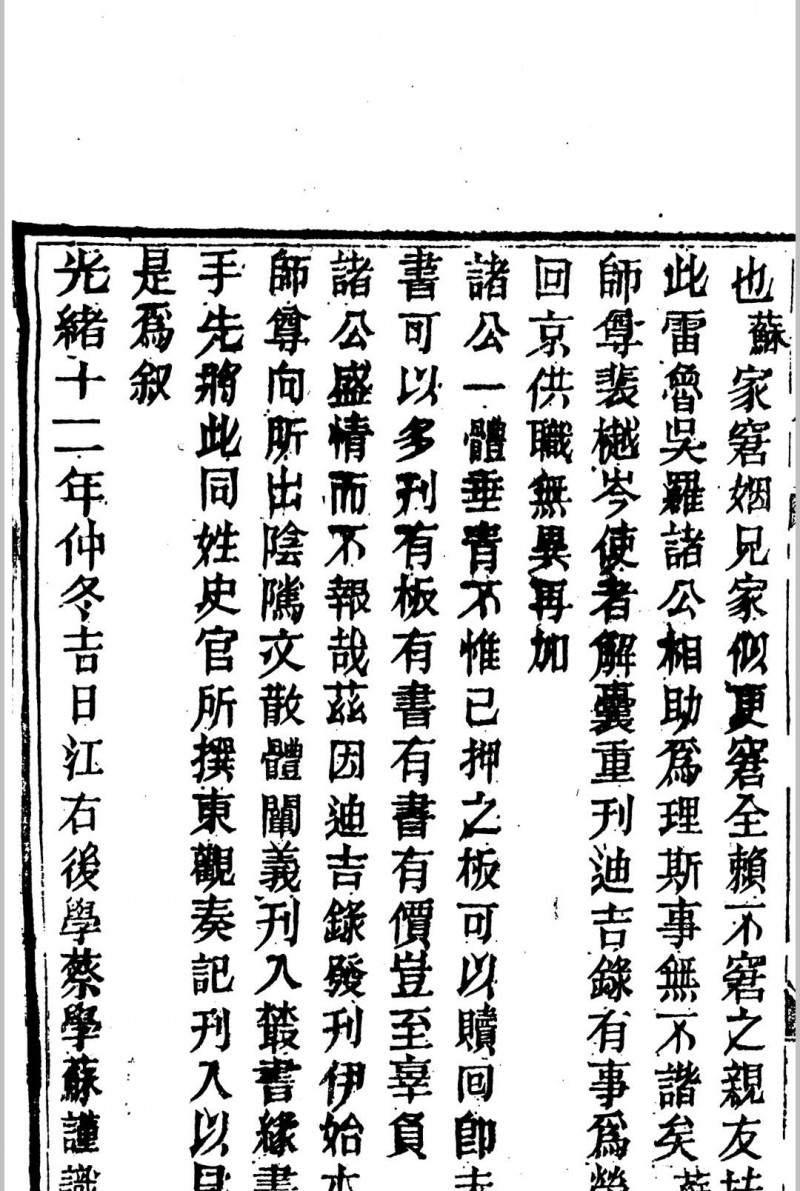 也蘇家窘姻兄家似更窘全賴不窘之親友扶
此雷魯吳羅諸公相助爲理斯事無不諧矣蘇
師尊裴樾岑使者解囊重刊迪吉錄有事爲勞
回京供職無異再加
諸公一體垂青不惟已押之板可以贖回即未
書可以多刊有板有書有書有價豈至辜負
諸公盛情而不報哉茲因迪吉錄發刊伊始本
師尊向所出陰騭文散體闡義刊入叢書緣書
手先將此同姓史官所撰東觀奏記刊入以見
是爲叙
光緒十二年仲冬吉日江右後學蔡學蘇謹識